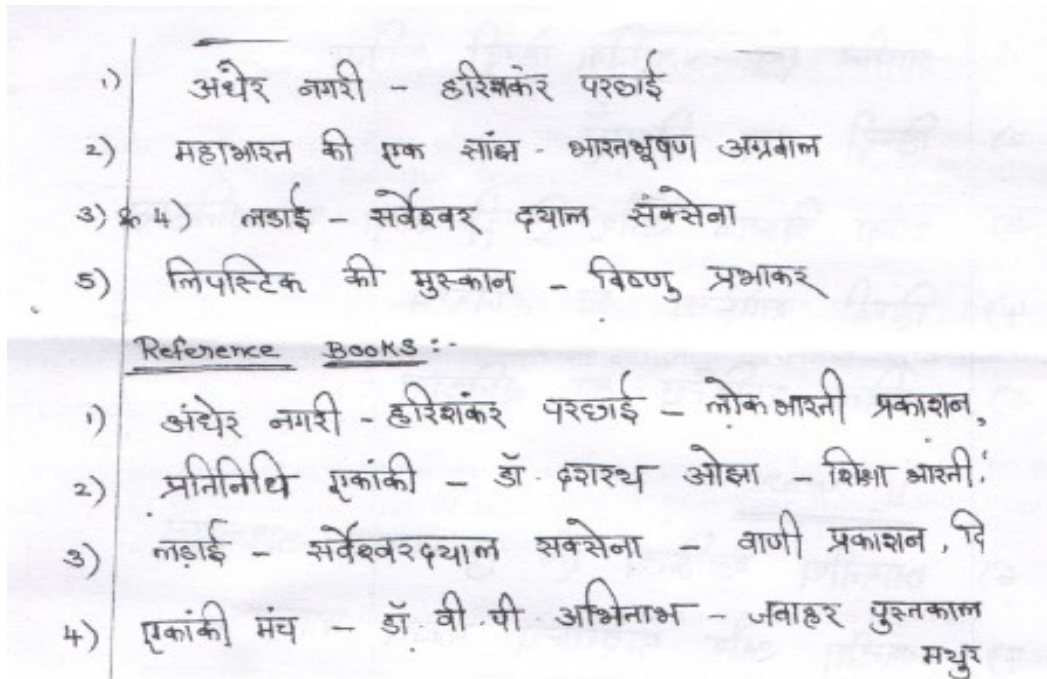 1) अंधेर नगरी - हरिशंकर परछाई
2) महाभारत की एक सांझ - भारतभूषण अग्रवाल
3) & 4) लडाई - सर्वेश्वर दयाल सक्सेना
5) लिपस्टिक की मुस्कान - विष्णु प्रभाकर
Reference Books:-
1) अंधेर नगरी - हरिशंकर परछाई - लोकभारती प्रकाशन,
2) प्रतिनिधि एकांकी - डॉ. दशरथ ओझा - शिक्षा भारती
3) लड़ाई - सर्वेश्वरदयाल सक्सेना - वाणी प्रकाशन, दि
4) एकांकी मंच - डॉ. वी. पी. अभिताभ - जवाहर पुस्तकाल
मथुर